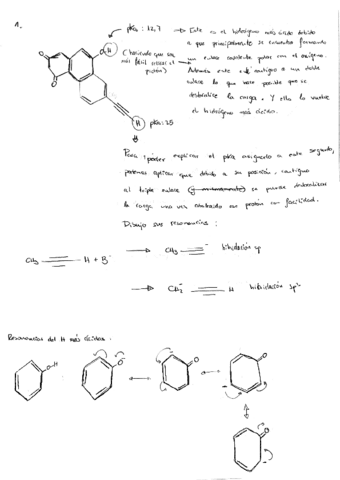 1.
pka: 12,7 → Este es el hidrógeno más ácido debido
a que principalmente se encuentra formando
(haciendo que sea un enlace covalente polar con el oxígeno.
más fácil atacar el Además este está contiguo a un doble
protón) enlace lo que hace posible que se
deslocalice la carga. Y ello lo vuelve
el hidrógeno más ácido.
OH
O
O
H pka: 25
Para poder explicar el pka asignado a este segundo,
podemos explicar que debido a su posición, contiguo
al triple enlace se puede deslocalizar
la carga una vez extraído ese protón con facilidad.
Dibujo sus resonancias:
CH3 H + B⁻ → CH3 hibridación sp
→ CH2⁻ H hibridación sp³
Resonancias del H más ácido:
O H O⁻ O O
O